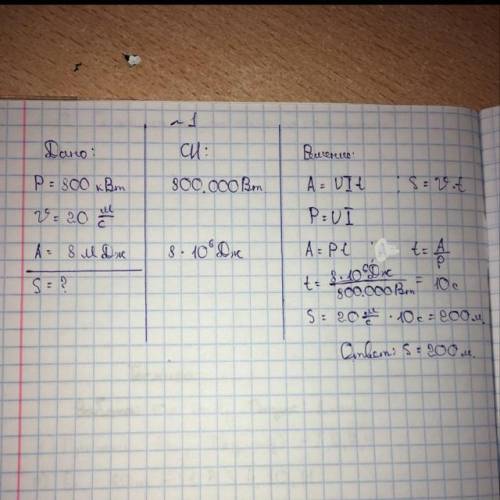 ~1
Дано:
P = 800 кВт
v = 20 м/с
A = 8 МДж
S = ?
СИ:
800.000 Вт
8 · 10⁶ Дж
Решение:
A = UIt ; S = v · t
P = UI
A = Pt t = A/P
t = 8 · 10⁶ Дж / 800.000 Вт = 10 с
S = 20 м/с · 10 с = 200 м.
Ответ: S = 200 м.